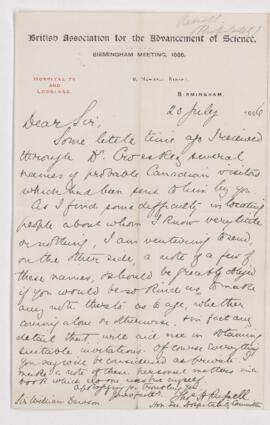 British Association for the Advancement of Science.
BIRMINGHAM MEETING, 1886.
HOSPITALITY
AND
LODGINGS.
BIRMINGHAM.
20 July 1886
Dear Sir,
Some little time ago I received
through Dr. Crosskey several
names of probable Canadian visitors
which had been sent to him by you
As I find some difficulty in locating
people about whom I know very little
or nothing, I am venturing to send,
on the other side, a note of a few of
these names, & should be greatly obliged
if you would be so kind as to make
any note thereto as to age, whether
coming alone or otherwise, & in fact any
detail that will aid me in obtaining
suitable invitations. Of course everything
you say will be considered as private. I
make a note of these personal matters in a
book which no one sees but myself.
Apologising for troubling you
Sir William Dawson